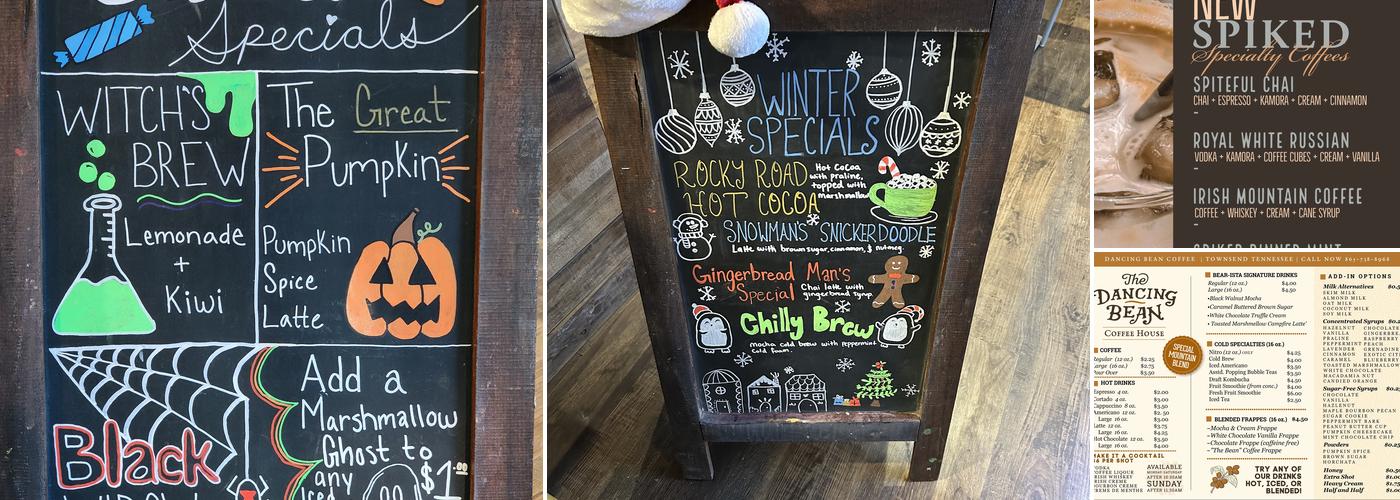 Specials
WITCH'S
BREW
Lemonade
+
Kiwi
The Great
Pumpkin
Pumpkin
Spice
Latte
Black
Add a
Marshmallow
Ghost to
any
$1.00
WINTER
SPECIALS
ROCKY ROAD
HOT COCOA
Hot Cocoa
with praline,
topped with
marshmallow
SNOWMAN'S SNICKERDOODLE
Latte with brown sugar, cinnamon, & nutmeg.
Gingerbread Man's
Special
Chai latte with
gingerbread syrup
Chilly Brew
mocha cold brew with peppermint
cold foam.
NEW
SPIKED
Specialty Coffees
SPITEFUL CHAI
CHAI + ESPRESSO + KAMORA + CREAM + CINNAMON
-
ROYAL WHITE RUSSIAN
VODKA + KAMORA + COFFEE CUBES + CREAM + VANILLA
-
IRISH MOUNTAIN COFFEE
COFFEE + WHISKEY + CREAM + CANE SYRUP
-
DANCING BEAN COFFEE | TOWNSEND TENNESSEE | CALL NOW 865-738-8968
The
DANCING
BEAN
COFFEE HOUSE
SPECIAL
MOUNTAIN
BLEND
COFFEE
Regular (12 oz.) $2.25
Large (16 oz.) $2.75
Pour Over $3.50
HOT DRINKS
Espresso 4 oz. $2.00
Cortado 4 oz. $3.00
Cappuccino 8 oz. $3.50
Americano 12 oz. $2.50
Large 16 oz. $3.00
Latte 12 oz. $3.75
Large 16 oz. $4.00
Hot Chocolate 12 oz. $3.50
Large 16 oz. $4.00
MAKE IT A COCKTAIL
$6 PER SHOT
VODKA
COFFEE LIQOUR
IRISH WHISKEY
IRISH CREME
BOURBON CREME
CREME DE MENTHE
AVAILABLE
SUNDAY
BEAR-ISTA SIGNATURE DRINKS
Regular (12 oz.) $4.00
Large (16 oz.) $4.50
•Black Walnut Mocha
•Caramel Buttered Brown Sugar
•White Chocolate Truffle Cream
•Toasted Marshmallow Campfire Latte'
COLD SPECIALTIES (16 oz.)
Nitro (12 oz.) ONLY $4.25
Cold Brew $4.00
Iced Americano $3.50
Asstd. Popping Bubble Teas $3.50
Draft Kombucha $4.50
Fruit Smoothie (from conc.) $4.00
Fresh Fruit Smoothie $6.00
Iced Tea $2.50
BLENDED FRAPPES (16 oz.) $4.50
~Mocha & Cream Frappe
~White Chocolate Vanilla Frappe
~Chocolate Frappe (caffeine free)
~"The Bean" Coffee Frappe
TRY ANY OF
OUR DRINKS
HOT, ICED, OR
BLENDED!
ADD-IN OPTIONS
Milk Alternatives
SKIM MILK
ALMOND MILK
OAT MILK
COCONUT MILK
SOY MILK
Concentrated Syrups
HAZELNUT
VANILLA
PRALINE
PEPPERMINT PEACH
LAVENDER
CINNAMON
CARAMEL
TOASTED MARSHMALLOW
WHITE CHOCOLATE
MACADAMIA NUT
CANDIED ORANGE
Sugar-Free Syrups
CHOCOLATE
VANILLA
HAZELNUT
MAPLE BOURBON PECAN
SUGAR COOKIE
PEPPERMINT BARK
PEANUT BUTTER CUP
PUMPKIN CHEESECAKE
MINT CHOCOLATE CHIP
Powders
PUMPKIN SPICE
BROWN SUGAR
HORCHATA
Honey
Extra Shot
Heavy Cream
Half and Half